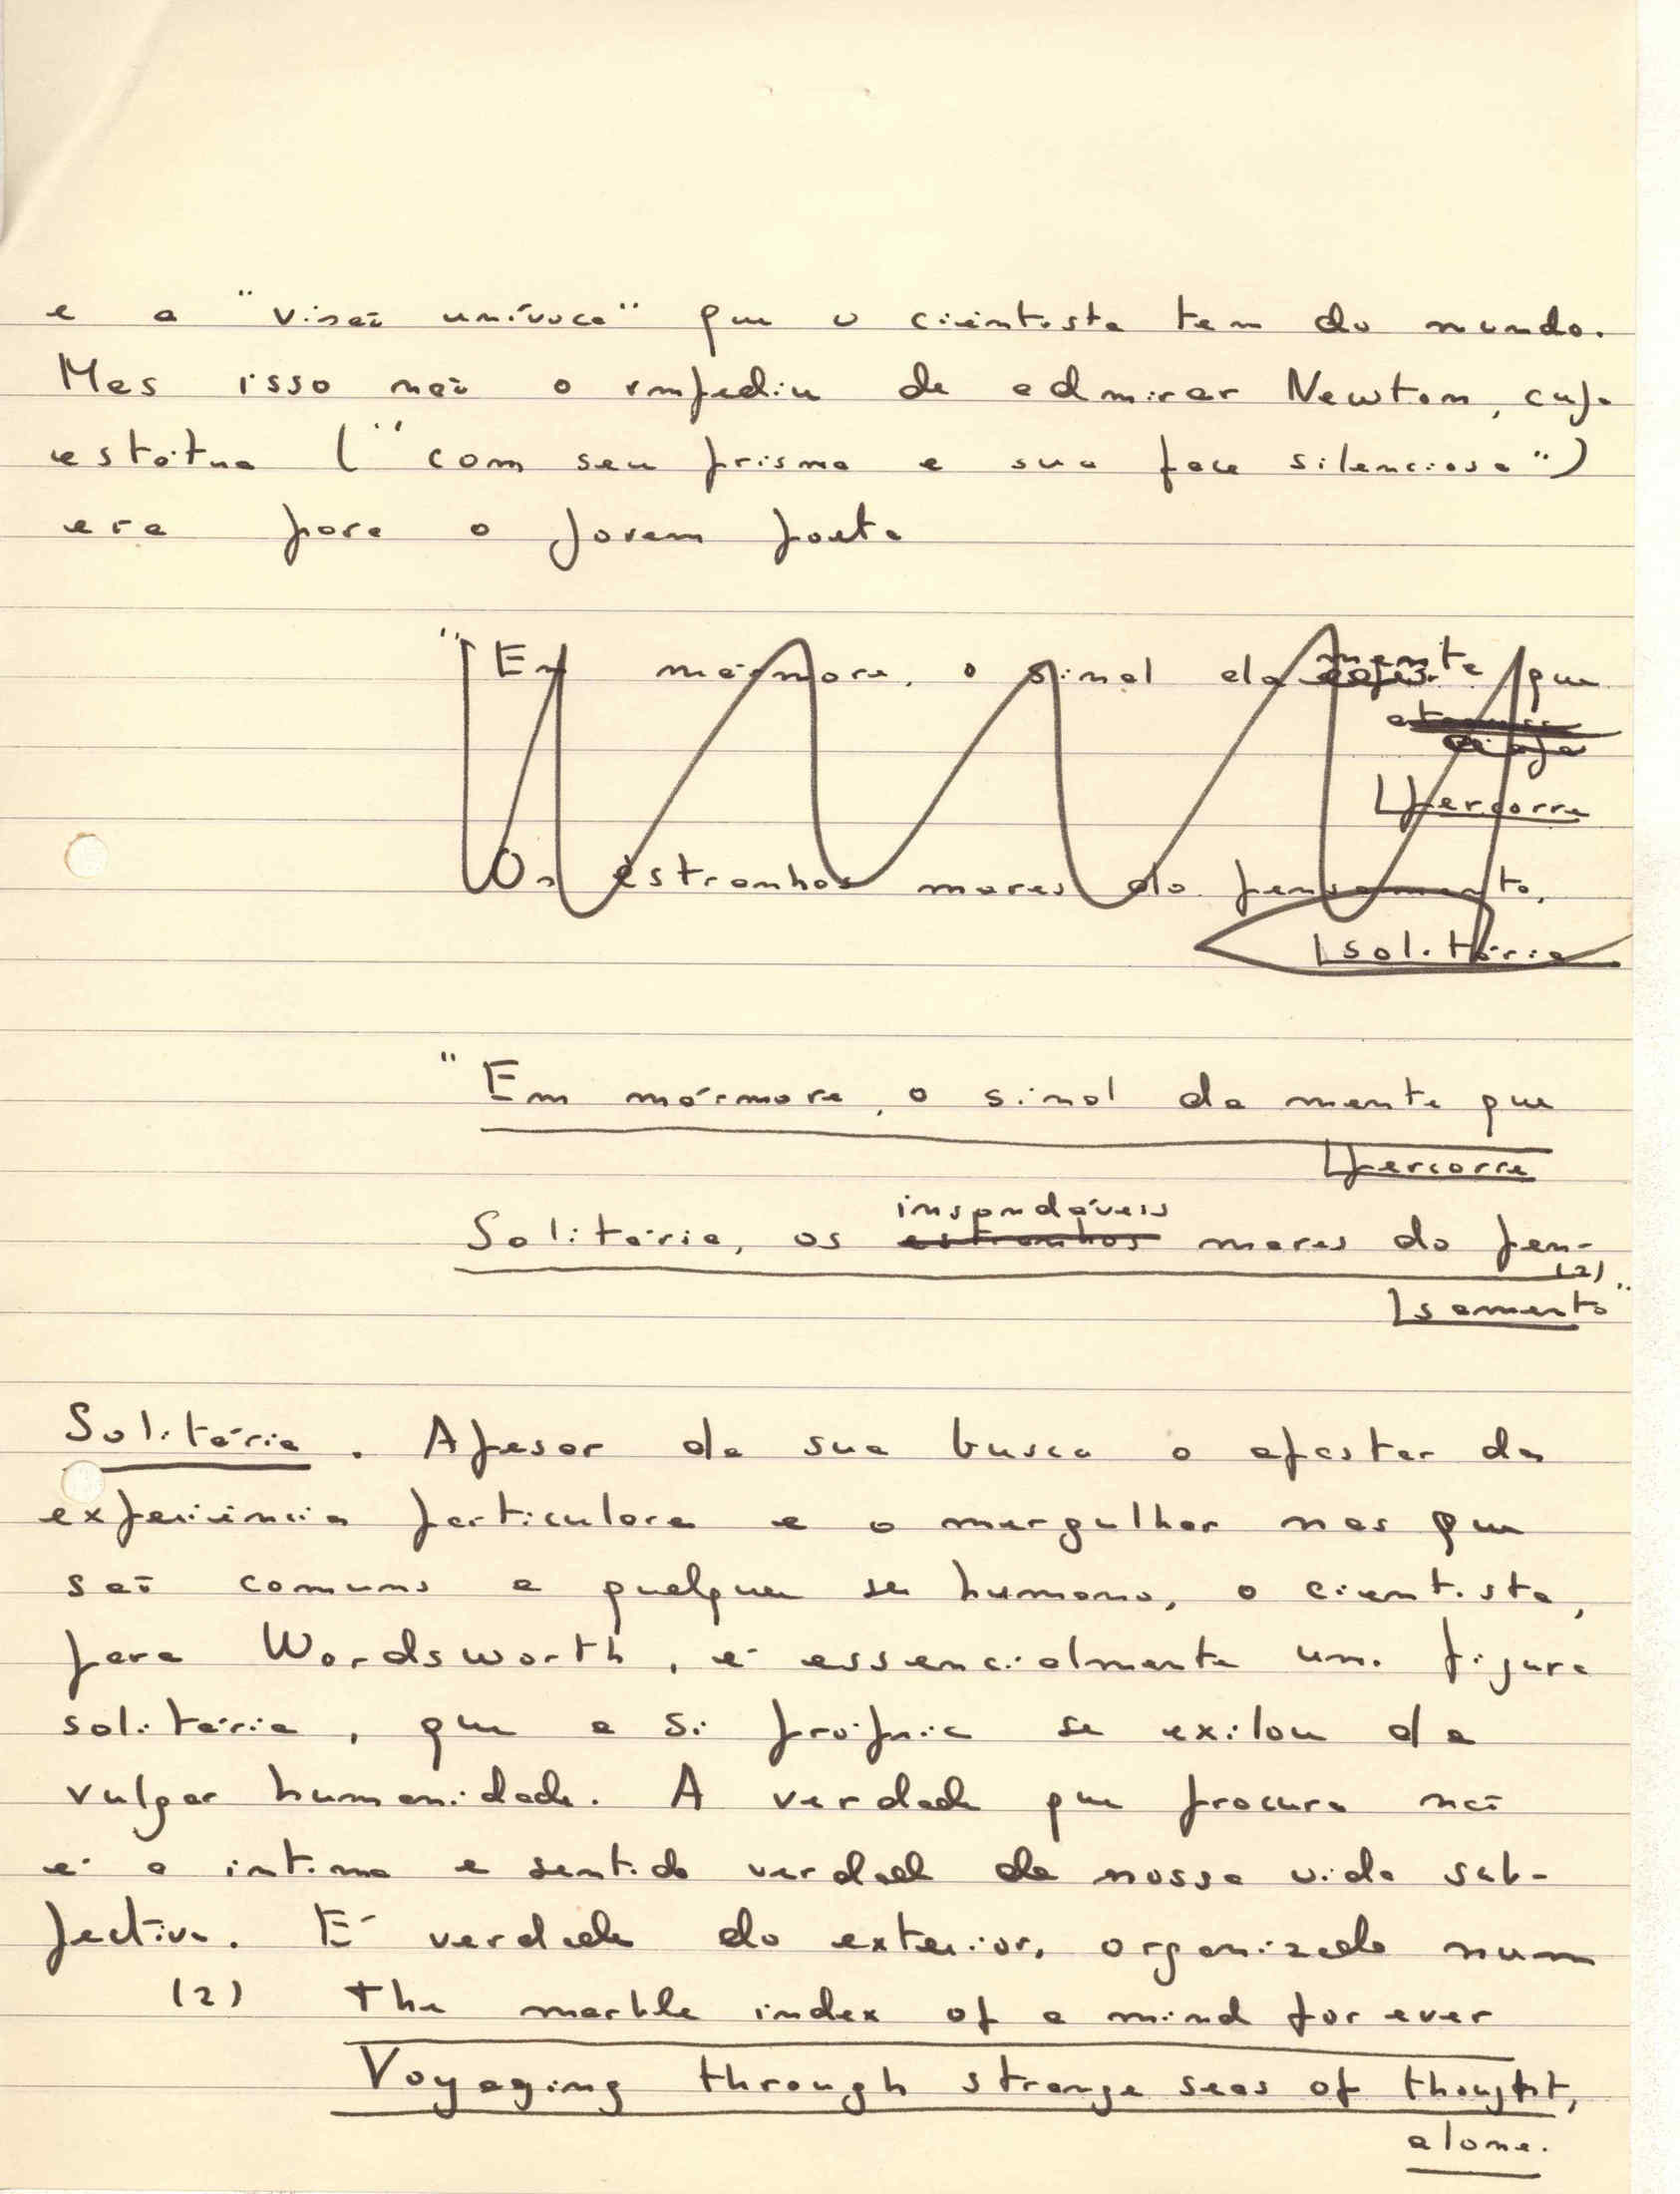 e a "visão unívoca" que o cientista tem do mundo.
Mas isso não o impediu de admirar Newton, cuja
estátua ("com seu prisma e sua face silenciosa")
era para o jovem poeta
"Em mármore, o sinal da mente que
percorre
Os estranhos mares do pensamento,
solitária
"Em mármore, o sinal da mente que
percorre
Solitária, os estranhos insondáveis mares do pen-
samento (2)"
Solitária. Apesar de sua busca o afastar das
experiências particulares e o mergulhar nas que
são comuns a qualquer ser humano, o cientista,
para Wordsworth, é essencialmente uma figura
solitária, que a si própria se exilou da
vulgar humanidade. A verdade que procura não
é a íntima e sentida verdade da nossa vida sub-
jectiva. É verdade do exterior, organizada num
(2) The marble index of a mind for ever
Voyaging through strange seas of thought,
alone.